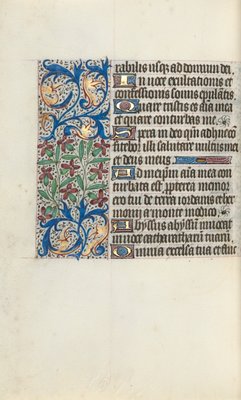 rabilis usq; ad domum dei.
In voce exultationis et
confessionis sonus epulātis.
Quare tristis es aīa mea
et quare conturbas me.
Spera in deo qm̄ adhuc cō
fitebor illi salutare vultus mei
et deus meus
Ad meip̄m aīa mea con
turbata est ꝓpterea memor
ero tui de terra iordanis et her
monij a monte modico.
Abyssus abyssū inuocat
in voce catharactarū tuarū.
Omnia excelsa tua et fluc